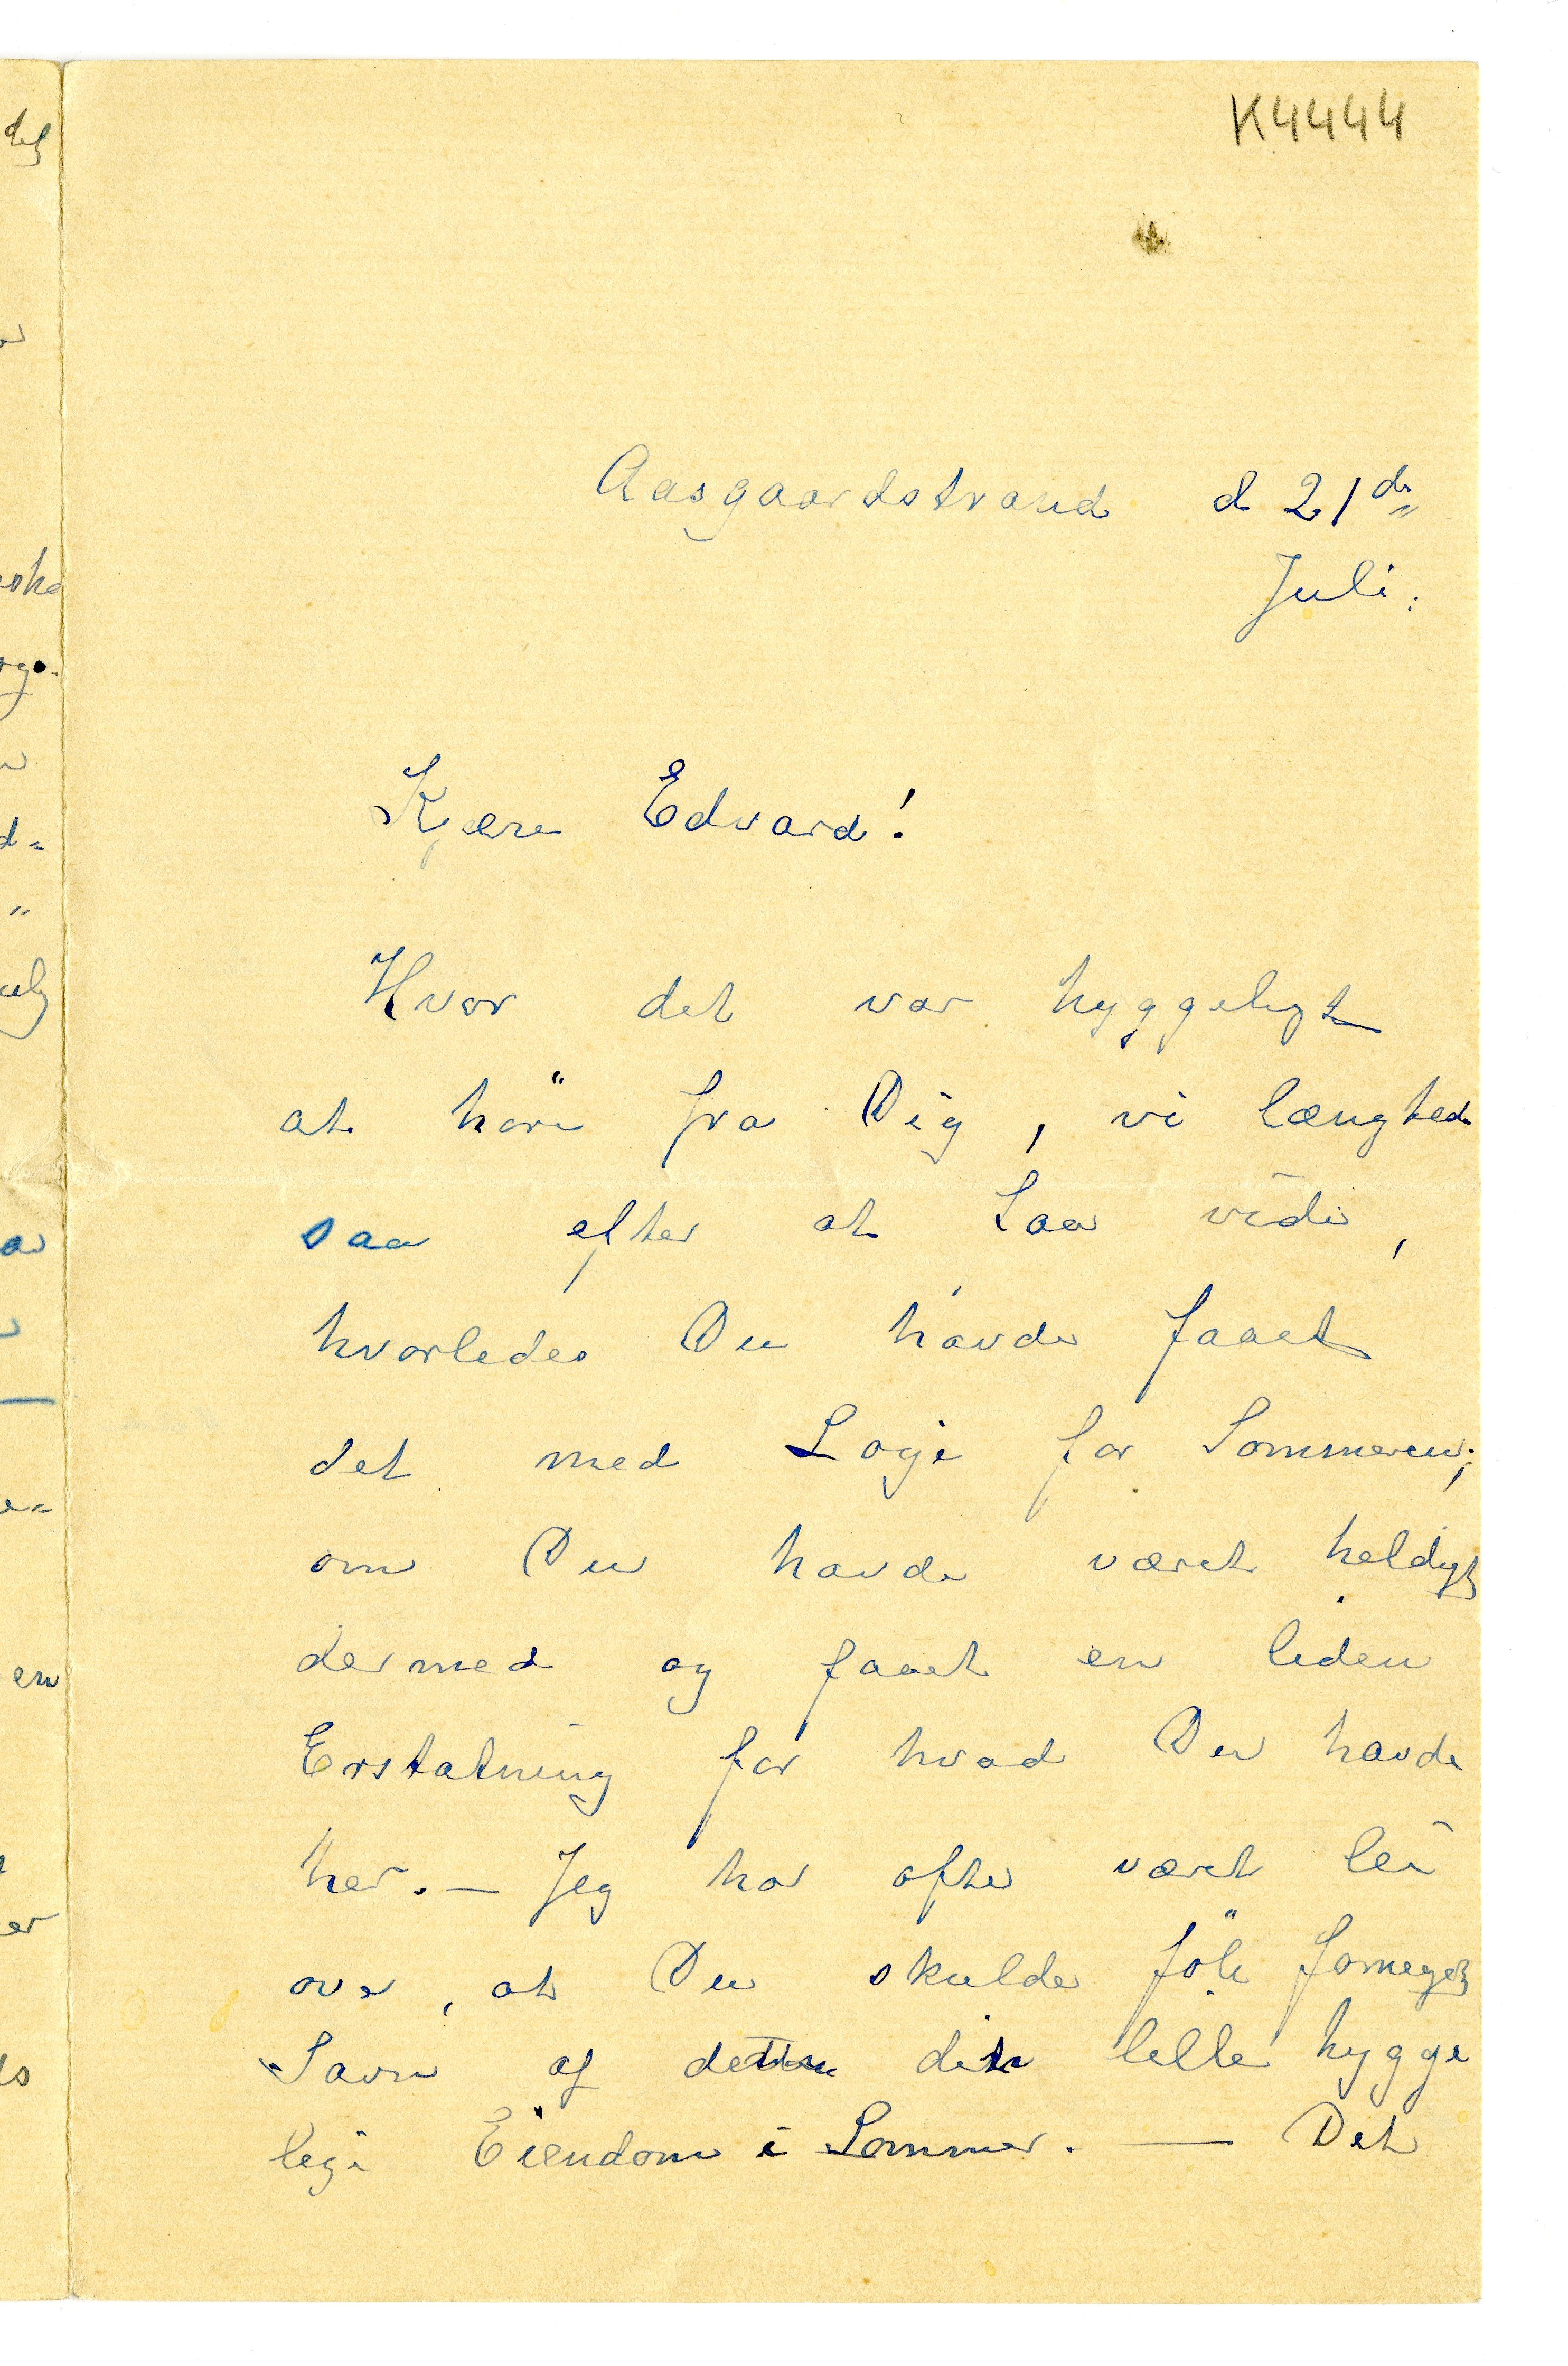 K4444
Aasgaardstrand d 21de
Juli.
Kjære Edvard!
Hvor det var hyggeligt
at höre fra Dig, vi længted
saa efter at faa vide,
hvorledes Du havde faaet
det med Logi for Sommeren;
om Du havde været heldig
dermed og faaet en liden
Erstatning for hvad Du havde
her. — Jeg har ofte været lei
over, at Du skulde föle formeget
Savn af dette dit lille hygge
lige Eiendom i Sommer. — Det